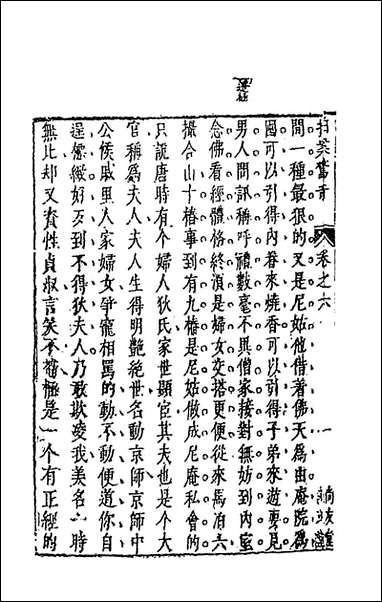 拍案驚奇 卷之六 一 尚友堂
間一種最狠的又是尼姑他借著佛天爲由庵院爲
囤可以引得內眷來燒香可以引得子弟來遊耍見
男人問訊稱呼禮數毫不異僧家接對無妨到內室
念佛看經體格終須是婦女交搭更便從來馬泊六
撮合山十樁事到有九樁是尼姑做成尼庵私會的
只說唐時有个婦人狄氏家世顯宦其夫也是个大
官稱爲夫人夫人生得明艷絕世名動京師京師中
公侯戚里人家婦女爭寵相罵的動不動便道你自
逞縹緻好歹到不得狄夫人乃敢欺凌我美名一時
無比却又資性貞淑言笑不苟極是一个有正經的